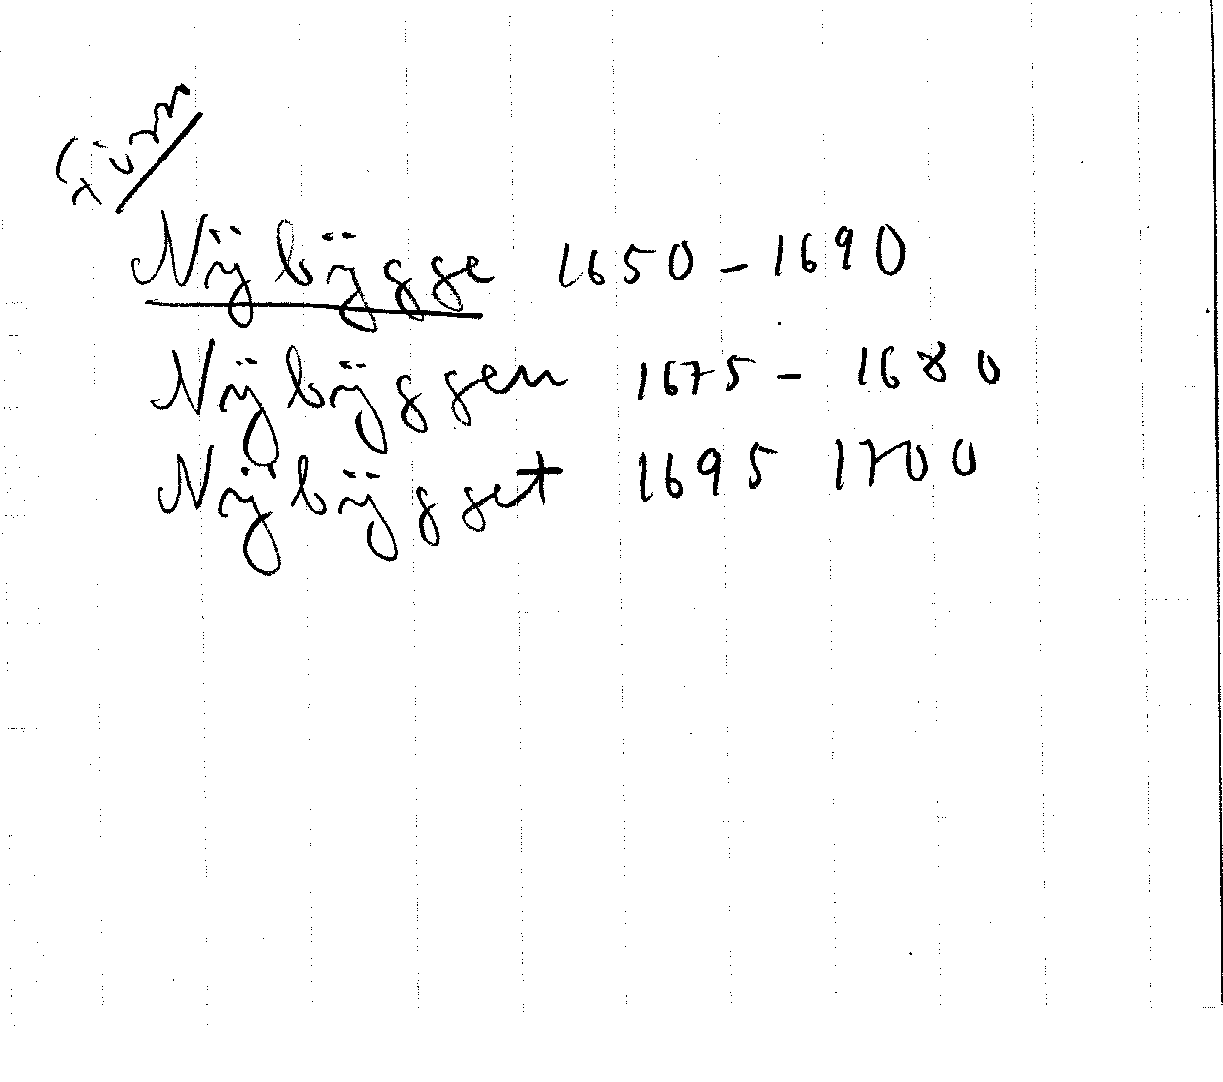 Nÿbÿgge 1650 - 1690
Nÿbÿggen 1675 - 1680
Nÿbÿgget 1695 1700